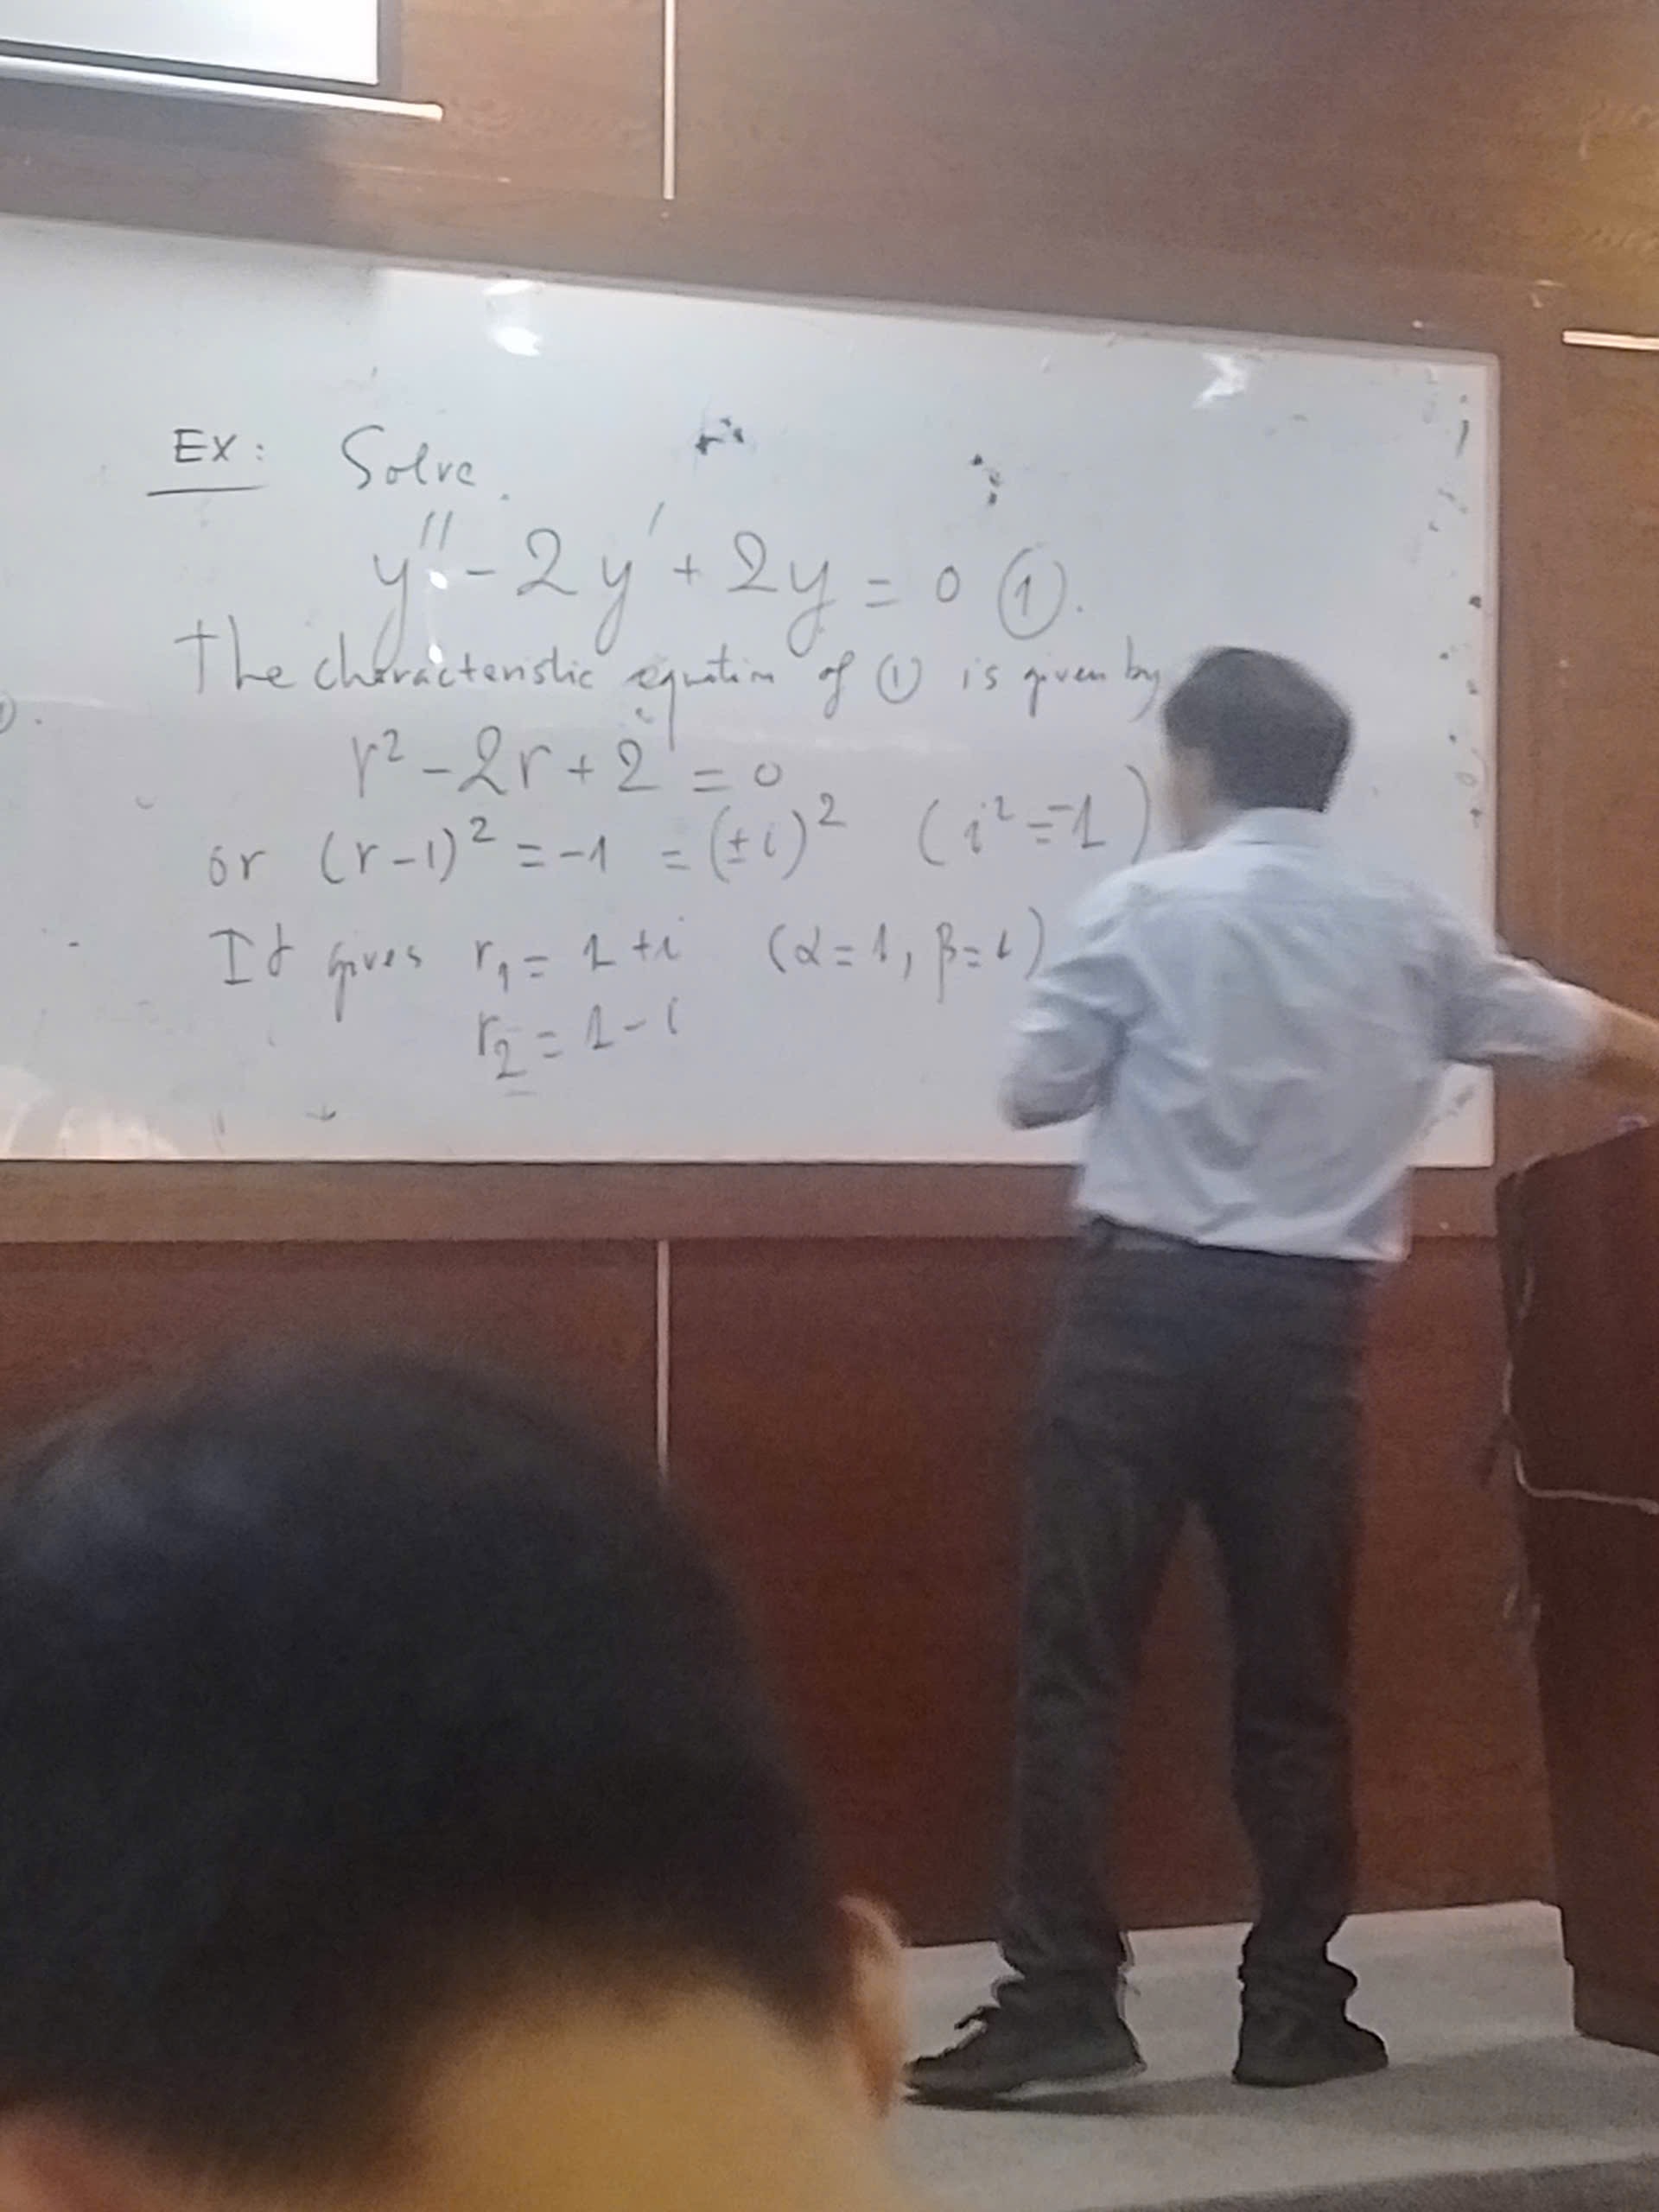 Ex: Solve.
y'' - 2y' + 2y = 0 ①.
The characteristic equation of ① is given by
r² - 2r + 2 = 0
or (r-1)² = -1 = (±i)² (i² = -1)
It gives r₁ = 1 + i (α = 1, β = 1)
r₂ = 1 - i